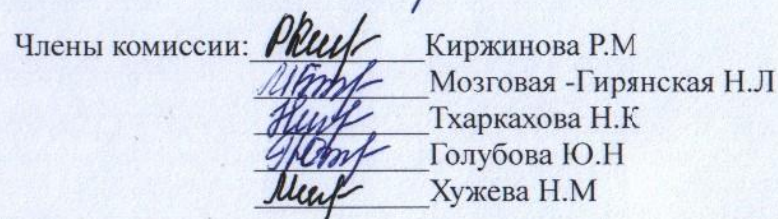 Члены комиссии: Киржинова Р.М
Мозговая -Гирянская Н.Л
Тхаркахова Н.К
Голубова Ю.Н
Хужева Н.М